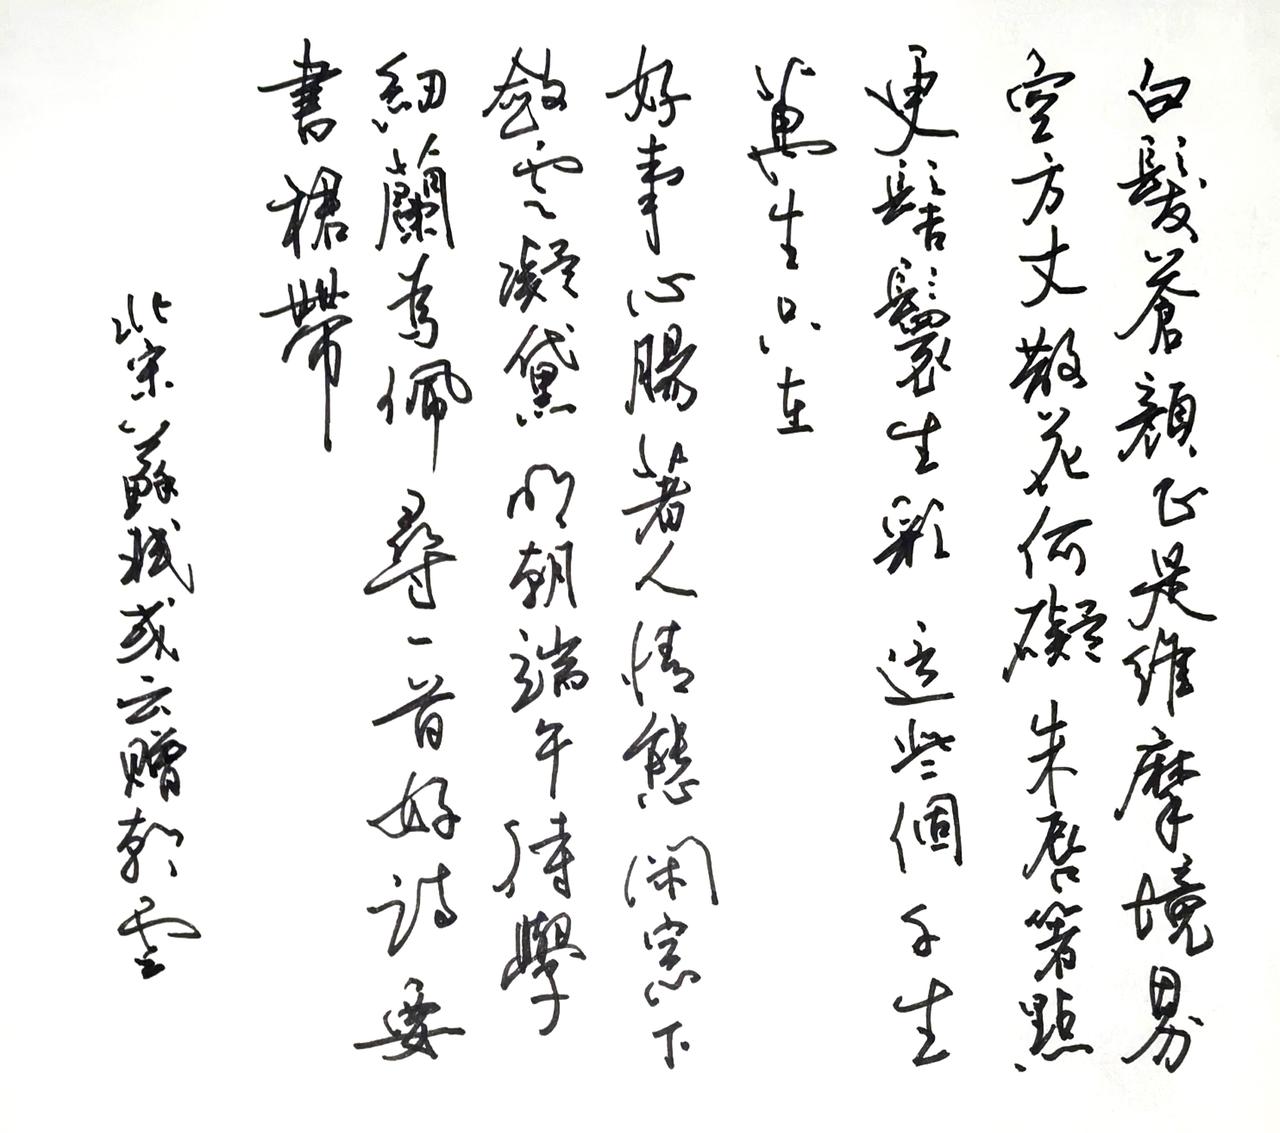 白髮蒼顏正是維摩境界
空方丈散花何礙朱唇箸點
更髻鬟生彩這些個千生
萬生只在
好事心腸著人情態閑窓下
斂雲凝黛明朝端午待學
紉蘭為佩尋一首好詩要
書裙帶
北宋蘇軾或云贈朝雲